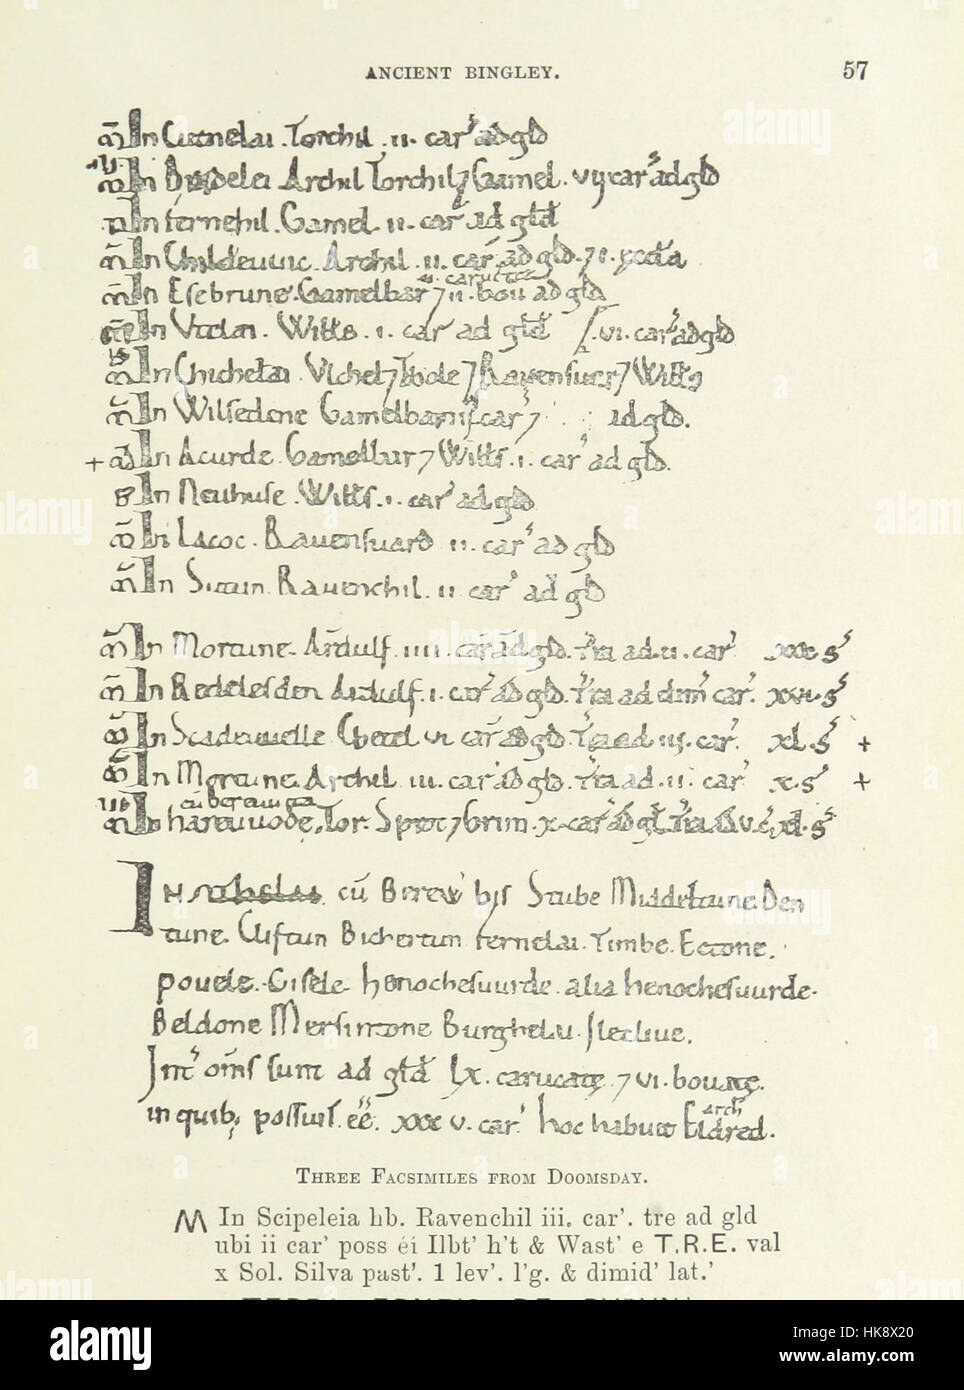 ANCIENT BINGLEY. 57
In Cutnelai . Torchil . ii . car' ad gld
In Archil Torchil 7 Gamel . vij car' ad gld
In fernehil . Gamel . ii . car' ad gld
In Childeuuic . Archil . ii . car' ad gld . 7 i .
ii . carucate
In Esebrune . Gamelbar 7 ii . bou ad gld
In . Wills . i . car' ad gld . vi . car' ad gld
In Chichelai . Vlchel 7 Tole 7 Rauensuar 7 Wills
In Wilsedene Gamelbar car' 7 ad gld .
+ In Acurde . Gamelbar 7 Wills . i . car' ad gld .
In Neuhuse . Wills . i . car' ad gld
In Lacoc . Rauensuard ii . car' ad gld
In Sutun Rauenchil . ii car' ad gld
In Mortune . Ardulf . iiii . car' ad gld . t'ra ad . ii . car' xxx . s'
In Redelesden Ardulf . i . car' ad gld . t'ra ad dim' car' . xvi . s'
In Scadeuuelle Chetel vi car' ad gld . t'ra ad iij . car' . xl . s' +
In Mortune . Archil iii . car' ad gld . t'ra ad . ii . car' x . s' +
cu berewica
In hareuuode . Tor . Sprot 7 Grim . x . car' ad gld t'ra ad v . c' xl . s'
In cū Berew' his Stube Middeltune Den
tune . Cliftun Bichertun fernelai . Timbe . Ectone .
pouele . Gisele . henochesuurde . alia henochesuurde .
Beldone Mersintone Burghelai . Ileclive .
Int' om̄s sunt ad gld lx . carucate 7 vi . bouate .
Arch
in quib; possunt . ee . xxx v . car' hoc habuit Eldred .
THREE FACSIMILES FROM DOOMSDAY.
M In Scipeleia hb. Ravenchil iii. car'. tre ad gld
ubi ii car' poss éi Ilbt' h't & Wast' e T.R.E. val
x Sol. Silva past'. 1 lev'. l'g. & dimid' lat.'
alamy
Image ID: HK8X20
www.alamy.com